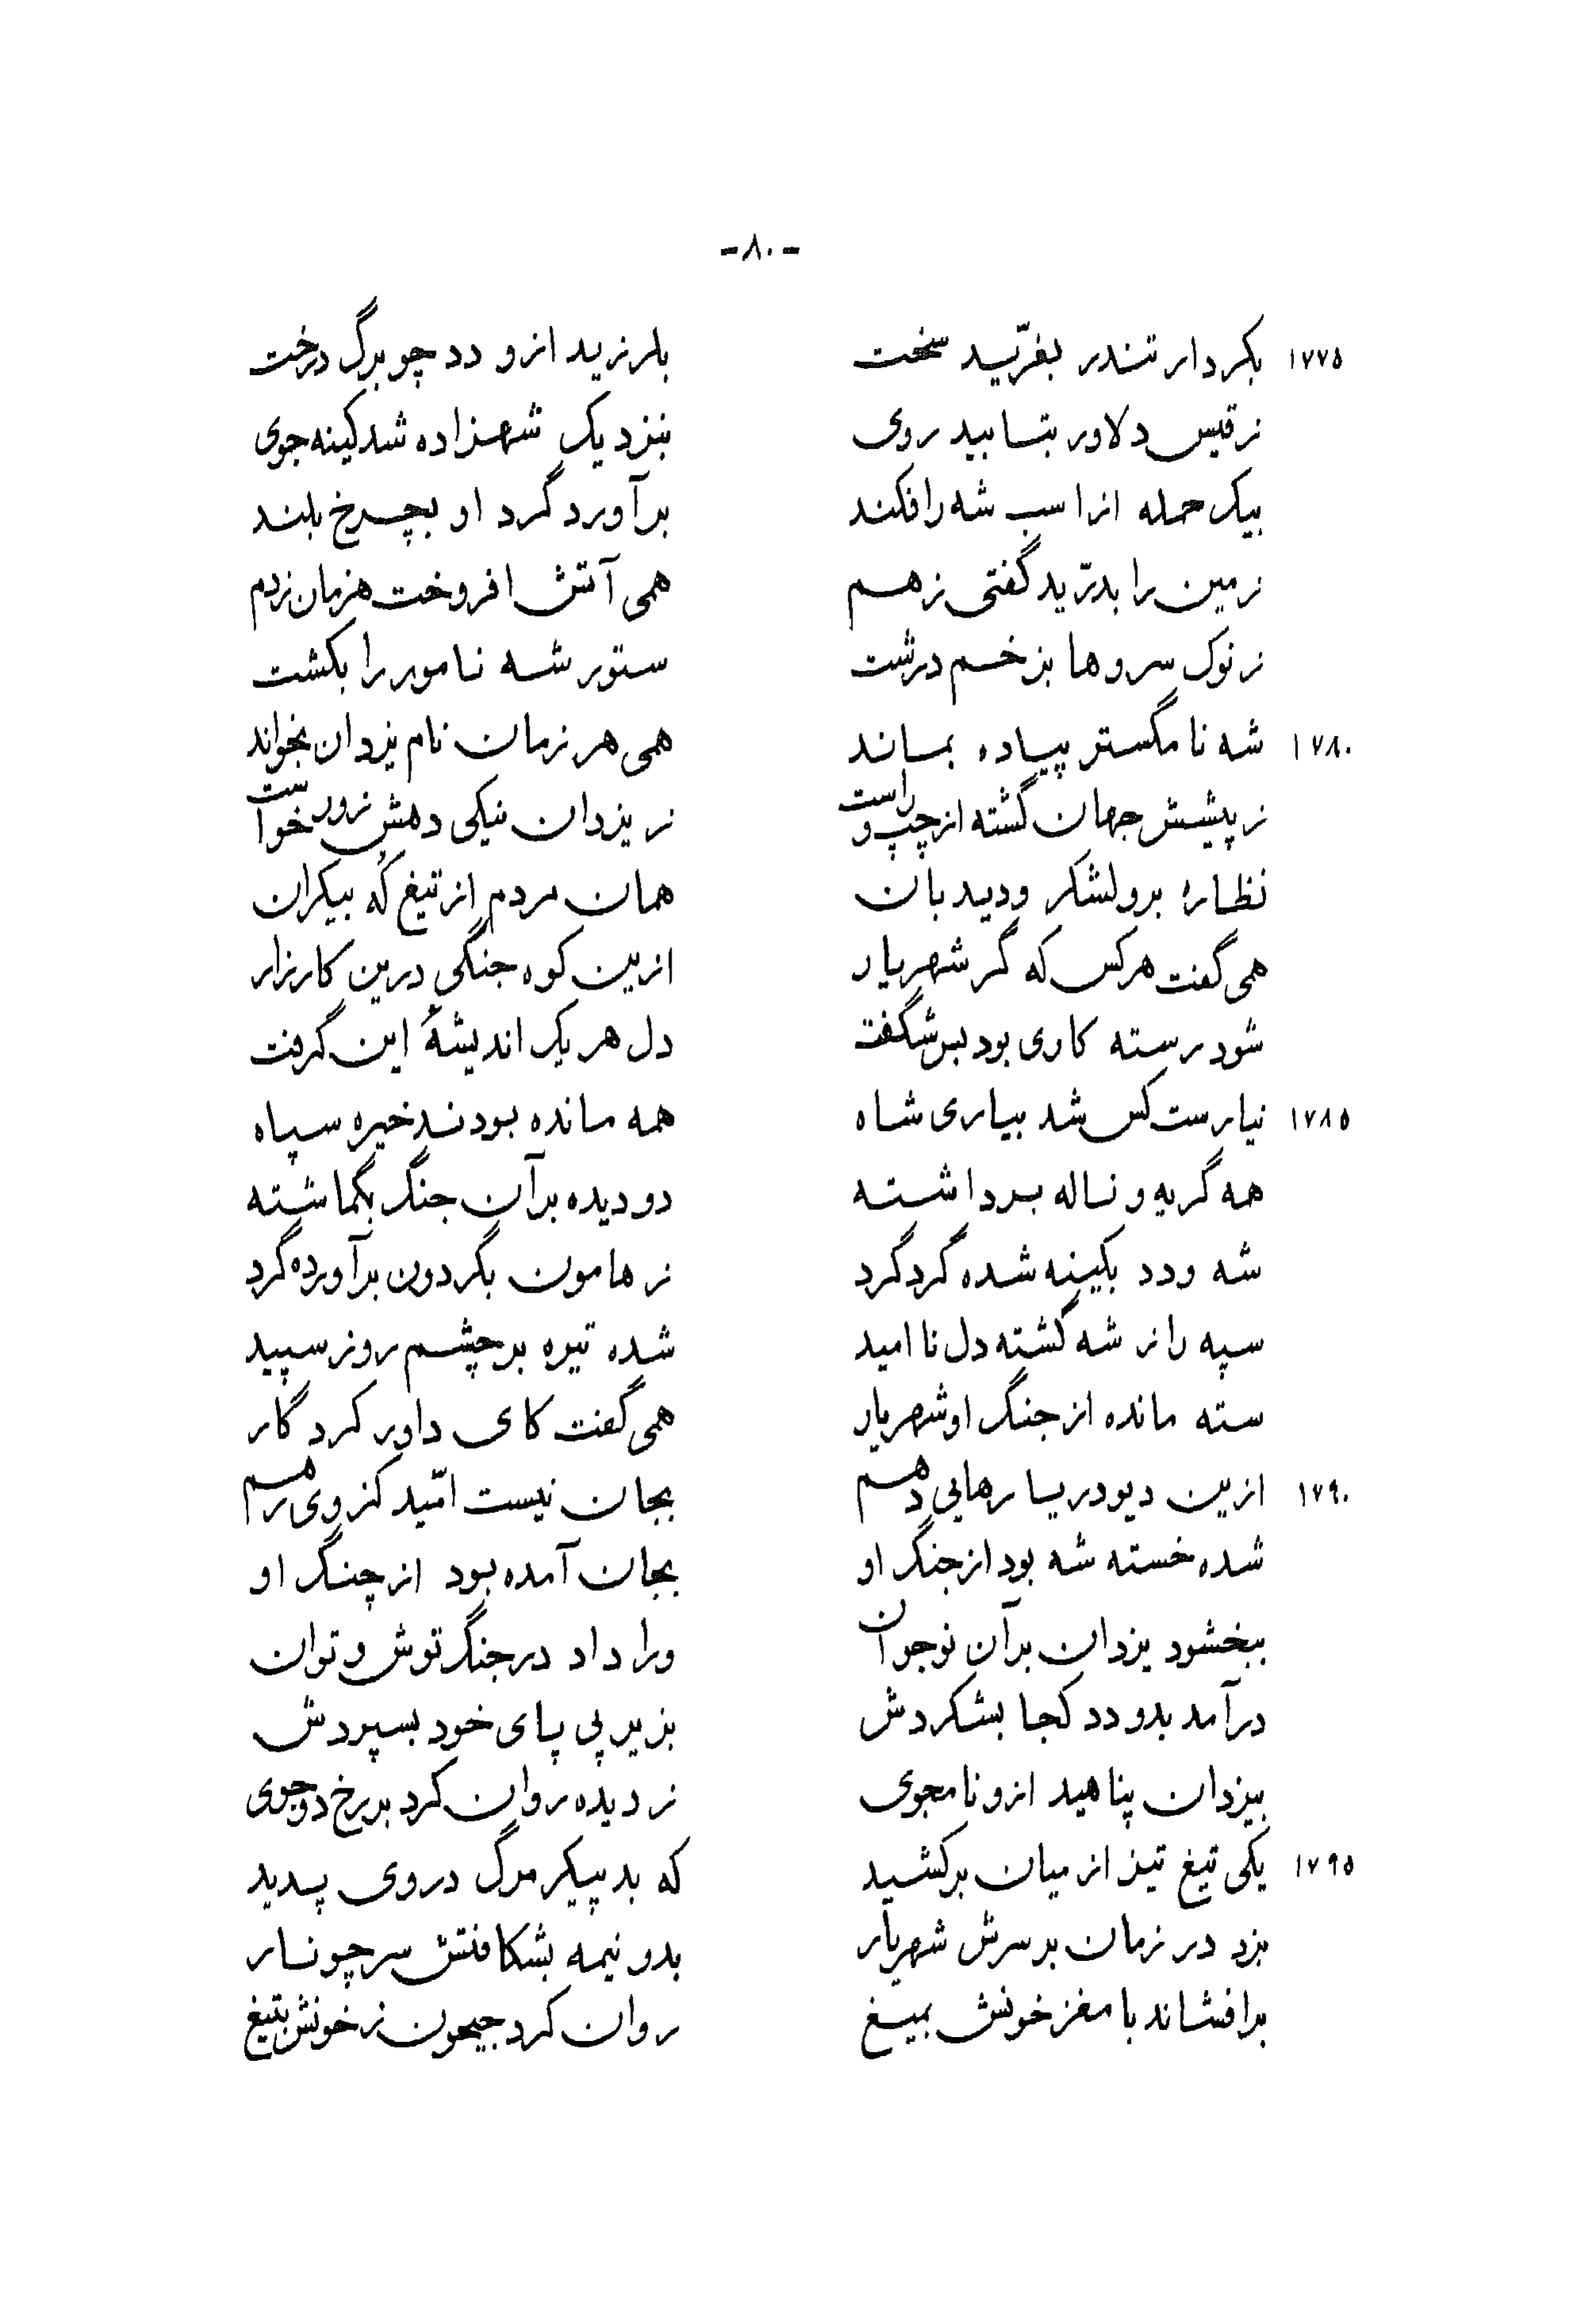 -۸۰-
۱۷۷۵ بکردار تندر بغرّید سخت بلرزید ازو دد چو برگ درخت
ز قیس دلاور بتابید روی بنزدیک شهزاده شد کینه جوی
بیک حمله از اسب شه را فکند برآورد گرد او بچرخ بلند
زمین را بدرّید گفتی ز هم همی آتش افروخت هزمان زدم
ز نوک سروها بزخم درشت ستور شه نامور را بکشت
۱۷۸۰ شه نامگستر پیاده بماند همی هر زمان نام یزدان بخواند
ز پیشش جهان گشته از چپ و راست ز یزدان نیکی دهش زور خواست
نظارهٔ برو لشکر و دیدبان همان مردم از تیغ که بیکران
همی گفت هرکس که گر شهریار ازین کوه جنگی درین کارزار
شود رسته کاری بود بس شگفت دل هریک اندیشهٔ این گرفت
۱۷۸۵ نیارست کس شد بیاری شاه همه مانده بودند خیره سپاه
همه گریه و ناله برداشته دو دیده برآن جنگ بگماشته
شه و دد بکینه شده گرد گرد ز هامون بگردون برآورده گرد
سپه را ز شه گشته دل ناامید شده تیره بر چشم روز سپید
سته مانده از جنگ او شهریار همی گفت کای داور کردگار
۱۷۹۰ ازین دیو دریا رهایی دهم بجان نیست امّید کز وی رهم
شده خسته شه بود از جنگ او بجان آمده بود از چنگ او
ببخشود یزدان برآن نوجوان ورا داد در جنگ توش و توان
درآمد بدو دد کجا بشکردش بزیر پی پای خود بسپردش
بیزدان پناهید ازو نامجوی ز دیده روان کرد بر رخ دو جوی
۱۷۹۵ یکی تیغ تیز از میان برکشید که بد پیکر مرگ در وی پدید
بزد در زمان بر سرش شهریار بدو نیمه بشکافتش سر چو نار
برافشاند با مغز خونش بمیغ روان کرد جیحون ز خونش بتیغ